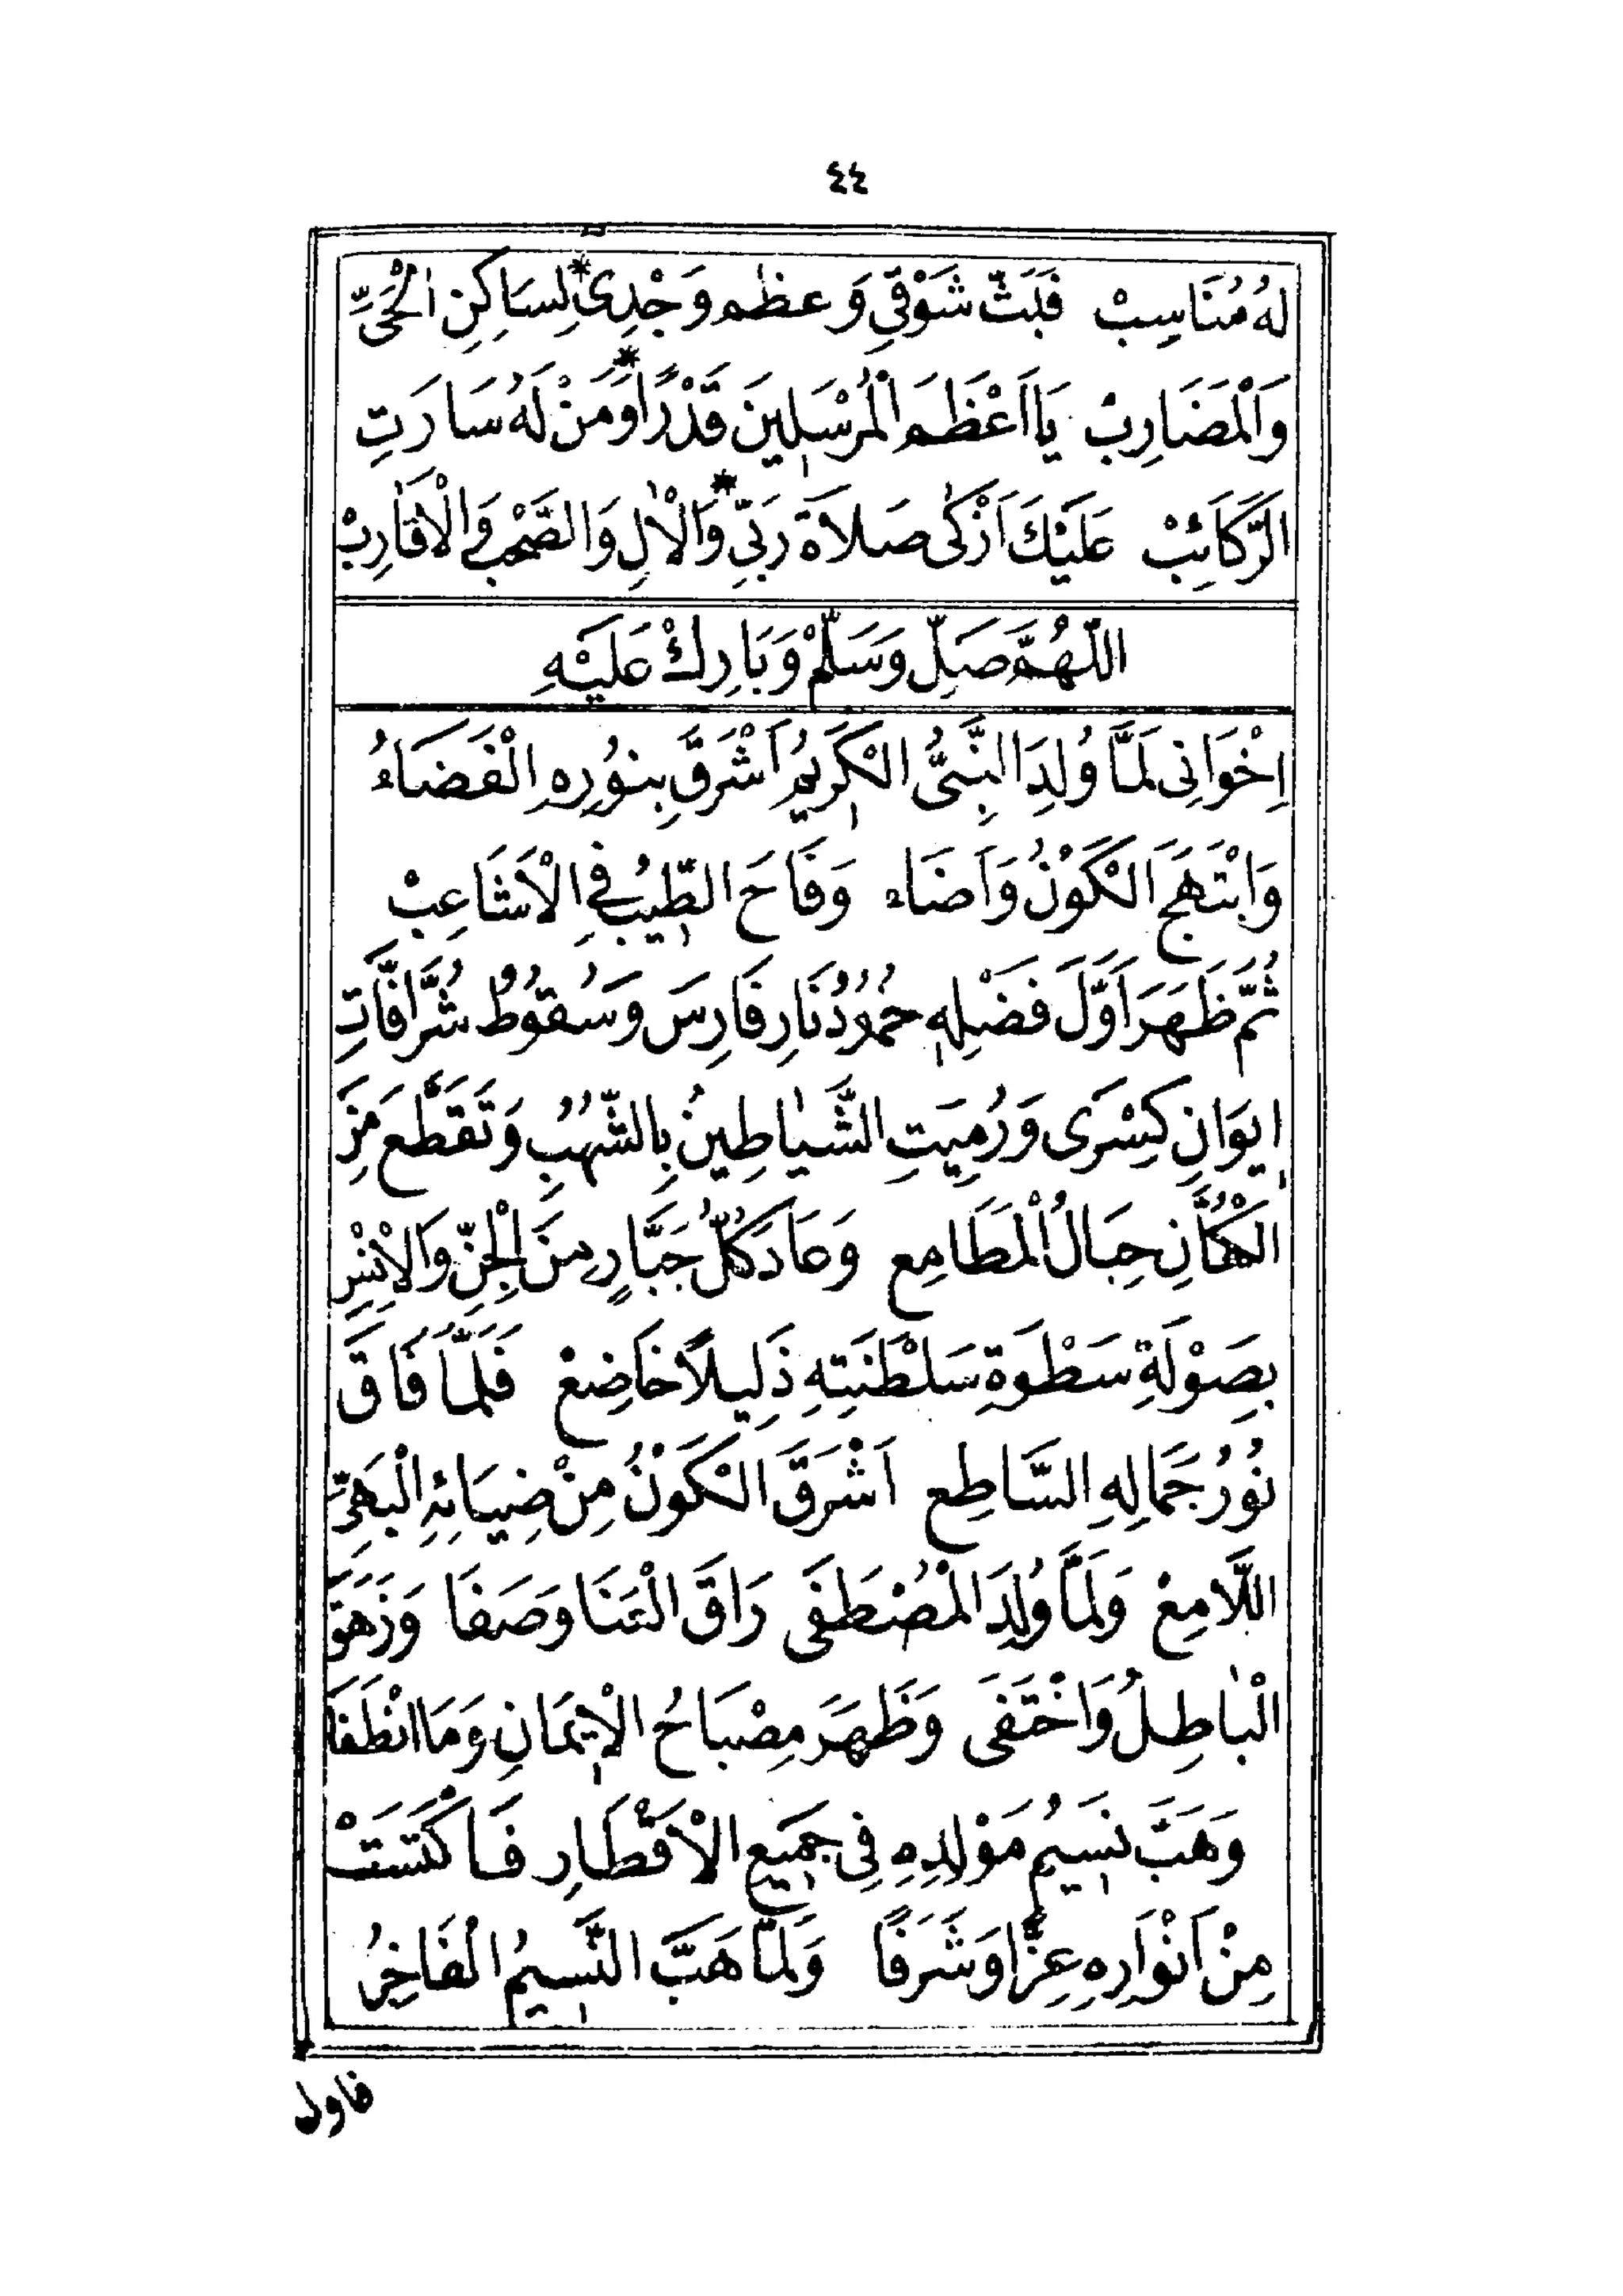 ٤٤
لَهُ مُنَاسِبْ فَبَثَّ شَوْقِي وَعظٰم وَجْدِى * لِسَاكِنِ الْحَيِّ
وَالْمَضَارِبْ يَا اَعْظَمَ الْمُرْسَلِينَ قَدْرًا * وَمَنْ لَهُ سَارَتِ
الرَّكَائِبْ عَلَيْكَ اَزْكٰى صَلَاةَ رَبِّي * وَالْاٰلِ وَالصَّحْبِ وَالْاَقَارِبْ
اَللّٰهُمَّ صَلِّ وَسَلِّمْ وَبَارِكْ عَلَيْهِ
اِخْوَانِى لَمَّا وُلِدَ النَّبِىُّ الْكَرِيمُ اَشْرَقَ بِنُورِهِ الْفَضَاءُ
وَابْتَهَجَ الْكَوْنُ وَاَضَاء وَفَاحَ الطِّيبُ فِي الْاَشَاعِبْ
ثُمَّ ظَهَرَ اَوَّلَ فَضْلِهِ خُمُودُ نَارِ فَارِسَ وَسُقُوطُ شُرَّافَاتِ
اِيوَانِ كِسْرَى وَرُمِيَتِ الشَّيٰاطِينُ بِالشُّهُبِ وَتَقَطَّعَ مِنَ
الْكُهَّانِ حِبَالُ الْمَطَامِع وَعَادَ كُلُّ جَبَّارٍ مِنَ الْجِنِّ وَالْاِنْسِ
بِصَوْلَةِ سَطْوَةِ سَلْطَنَتِهِ ذَلِيلًا خَاضِعْ فَلَمَّا فَاقَ
نُورُ جَمَالِهِ السَّاطِع اَشْرَقَ الْكَوْنُ مِنْ ضِيَائِهِ الْبَهِيِّ
اللَّامِعْ وَلَمَّا وُلِدَ الْمُصْطَفَى رَاقَ الْهَنَا وَصَفَا وَزَهَقَ
الْبٰاطِلُ وَاخْتَفَى وَظَهَرَ مِصْبَاحُ الْاِيمَانِ وَمَا انْطَفَا
وَهَبَّ نَسِيمُ مَوْلِدِهِ فِى جَمِيعِ الْاَقْطَارِ فَاكْتَسَتْ
مِنْ اَنْوَارِهِ عِزًّا وَشَرَفًا وَلَمَّا هَبَّ النَّسِيمُ الْفَاخِرُ
فاول